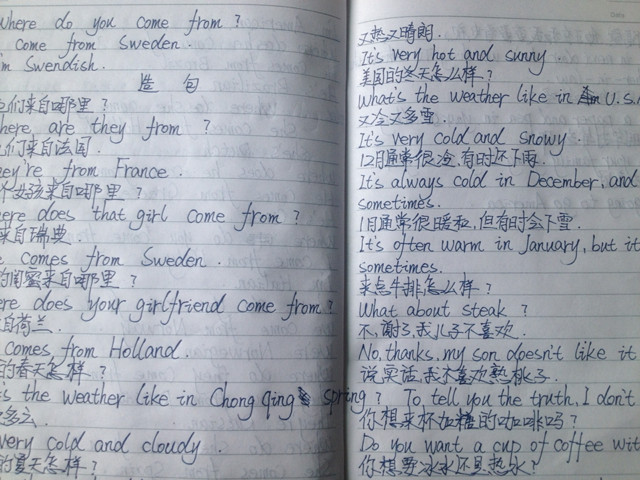 Where do you come from?
come from Sweden.
Swendish.
造 句
们来自哪里?
where are they from ?
们来自法国.
They're from France.
个女孩来自哪里?
where does that girl come from?
来自瑞典.
comes from Sweden.
的闺蜜来自哪里?
where does your girlfriend come from?
来自荷兰.
comes from Holland.
的春天怎样?
the weather like in Chong qing spring?
多云.
very cold and cloudy.
的夏天怎样?
又热又晴朗.
It's very hot and sunny.
美国的冬天怎么样?
What's the weather like in U.S.
又冷又多雪.
It's very cold and snowy.
12月通常很冷,有时还下雨.
It's always cold in December, and
sometimes.
1月通常很暖和,但有时会下雪.
It's often warm in January, but it
sometimes.
来点牛排怎么样?
What about steak ?
不,谢了,我儿子不喜欢.
No, thanks. my son doesn't like it
说实话,我不喜欢熟桃子.
To tell you the truth, I don't
你想来杯加糖的咖啡吗?
Do you want a cup of coffee
你想要冰水还是热水?